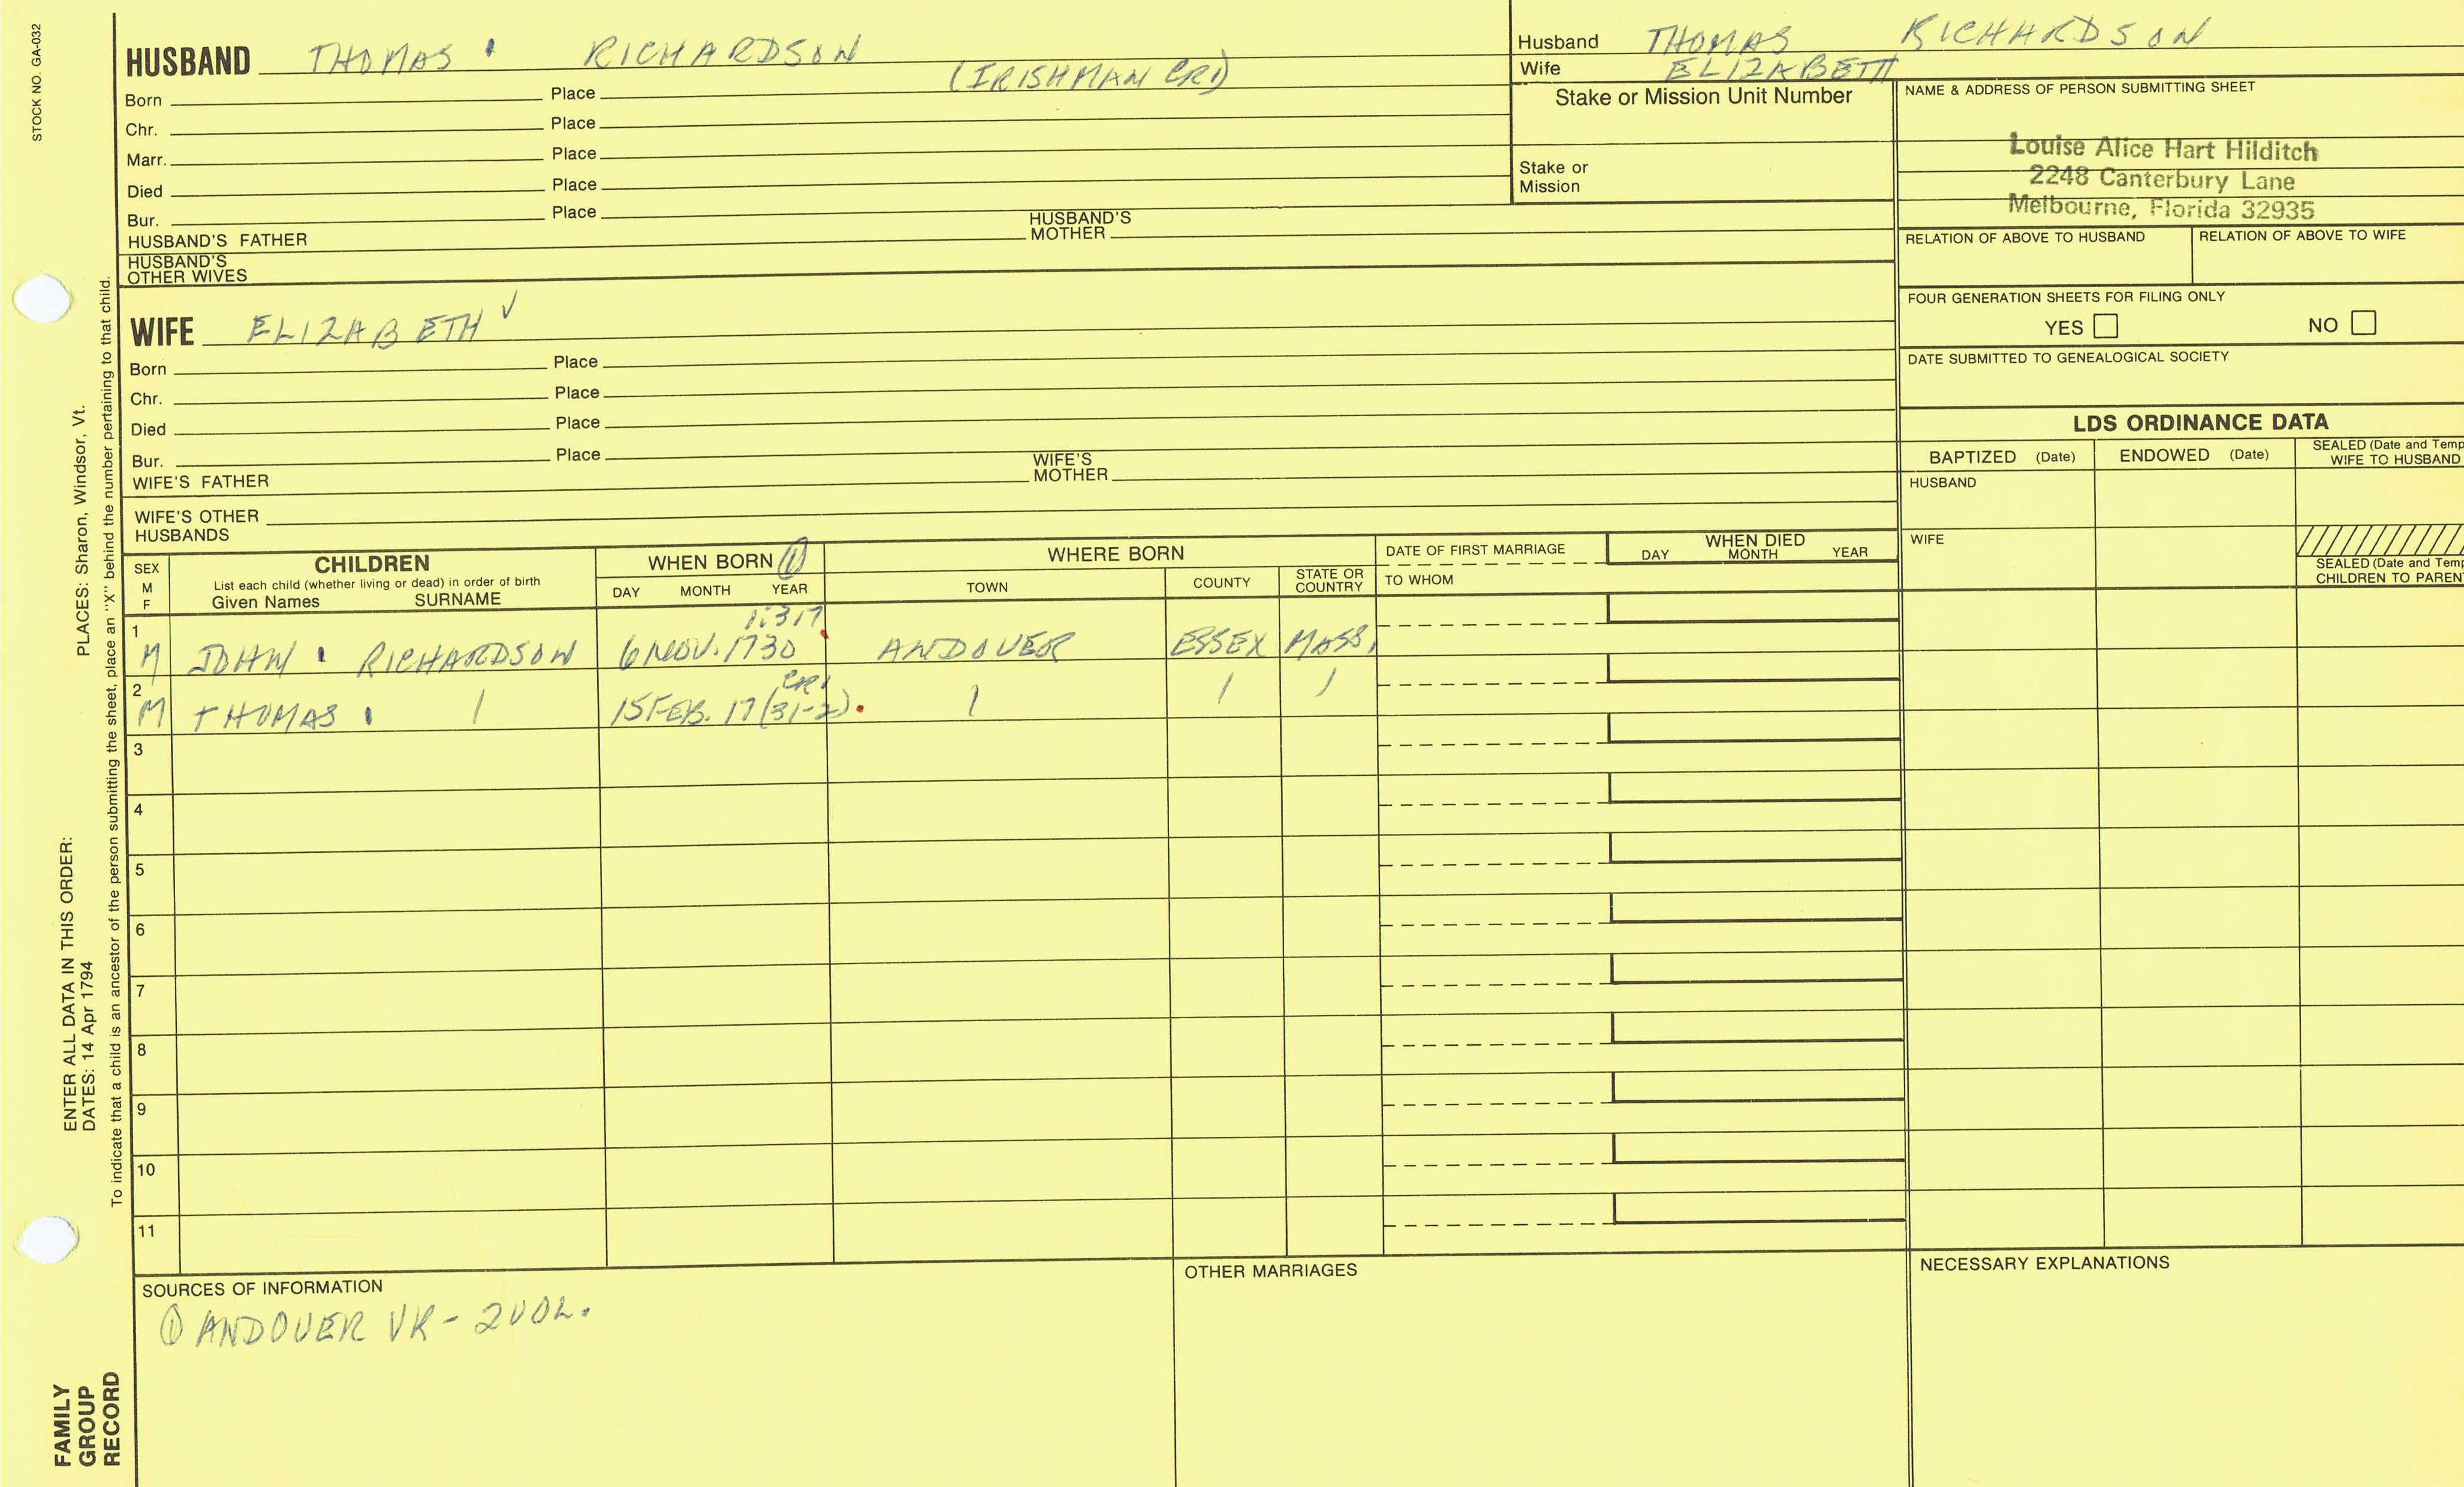 STOCK NO. GA-032
HUSBAND THOMAS RICHARDSON
(IRISHMAN CR1)
Born Place
Chr. Place
Marr. Place
Died Place
Bur. Place
HUSBAND'S FATHER HUSBAND'S MOTHER
HUSBAND'S OTHER WIVES
WIFE ELIZABETH ✓
Born Place
Chr. Place
Died Place
Bur. Place
WIFE'S FATHER WIFE'S MOTHER
WIFE'S OTHER HUSBANDS
Husband THOMAS RICHARDSON
Wife ELIZABETH
Stake or Mission Unit Number
Stake or Mission
NAME & ADDRESS OF PERSON SUBMITTING SHEET
Louise Alice Hart Hilditch
2248 Canterbury Lane
Melbourne, Florida 32935
RELATION OF ABOVE TO HUSBAND RELATION OF ABOVE TO WIFE
FOUR GENERATION SHEETS FOR FILING ONLY
YES NO
DATE SUBMITTED TO GENEALOGICAL SOCIETY
LDS ORDINANCE DATA
BAPTIZED (Date) ENDOWED (Date) SEALED (Date and Temp
WIFE TO HUSBAND
HUSBAND
WIFE
SEALED (Date and Temp
CHILDREN TO PAREN
SEX M F
CHILDREN
List each child (whether living or dead) in order of birth
Given Names SURNAME
WHEN BORN ①
DAY MONTH YEAR
WHERE BORN
TOWN COUNTY STATE OR COUNTRY
DATE OF FIRST MARRIAGE
TO WHOM
WHEN DIED
DAY MONTH YEAR
1 M JOHN RICHARDSON 6 NOV. 1730 ANDOVER ESSEX MASS.
2 M THOMAS 15 FEB. 17(31-2). CR1
3
4
5
6
7
8
9
10
11
SOURCES OF INFORMATION
① ANDOVER VR - 2 VOL.
OTHER MARRIAGES
NECESSARY EXPLANATIONS
PLACES: Sharon, Windsor, Vt.
ENTER ALL DATA IN THIS ORDER:
DATES: 14 Apr 1794
To indicate that a child is an ancestor of the person submitting the sheet, place an "X" behind the number pertaining to that child.
FAMILY
GROUP
RECORD